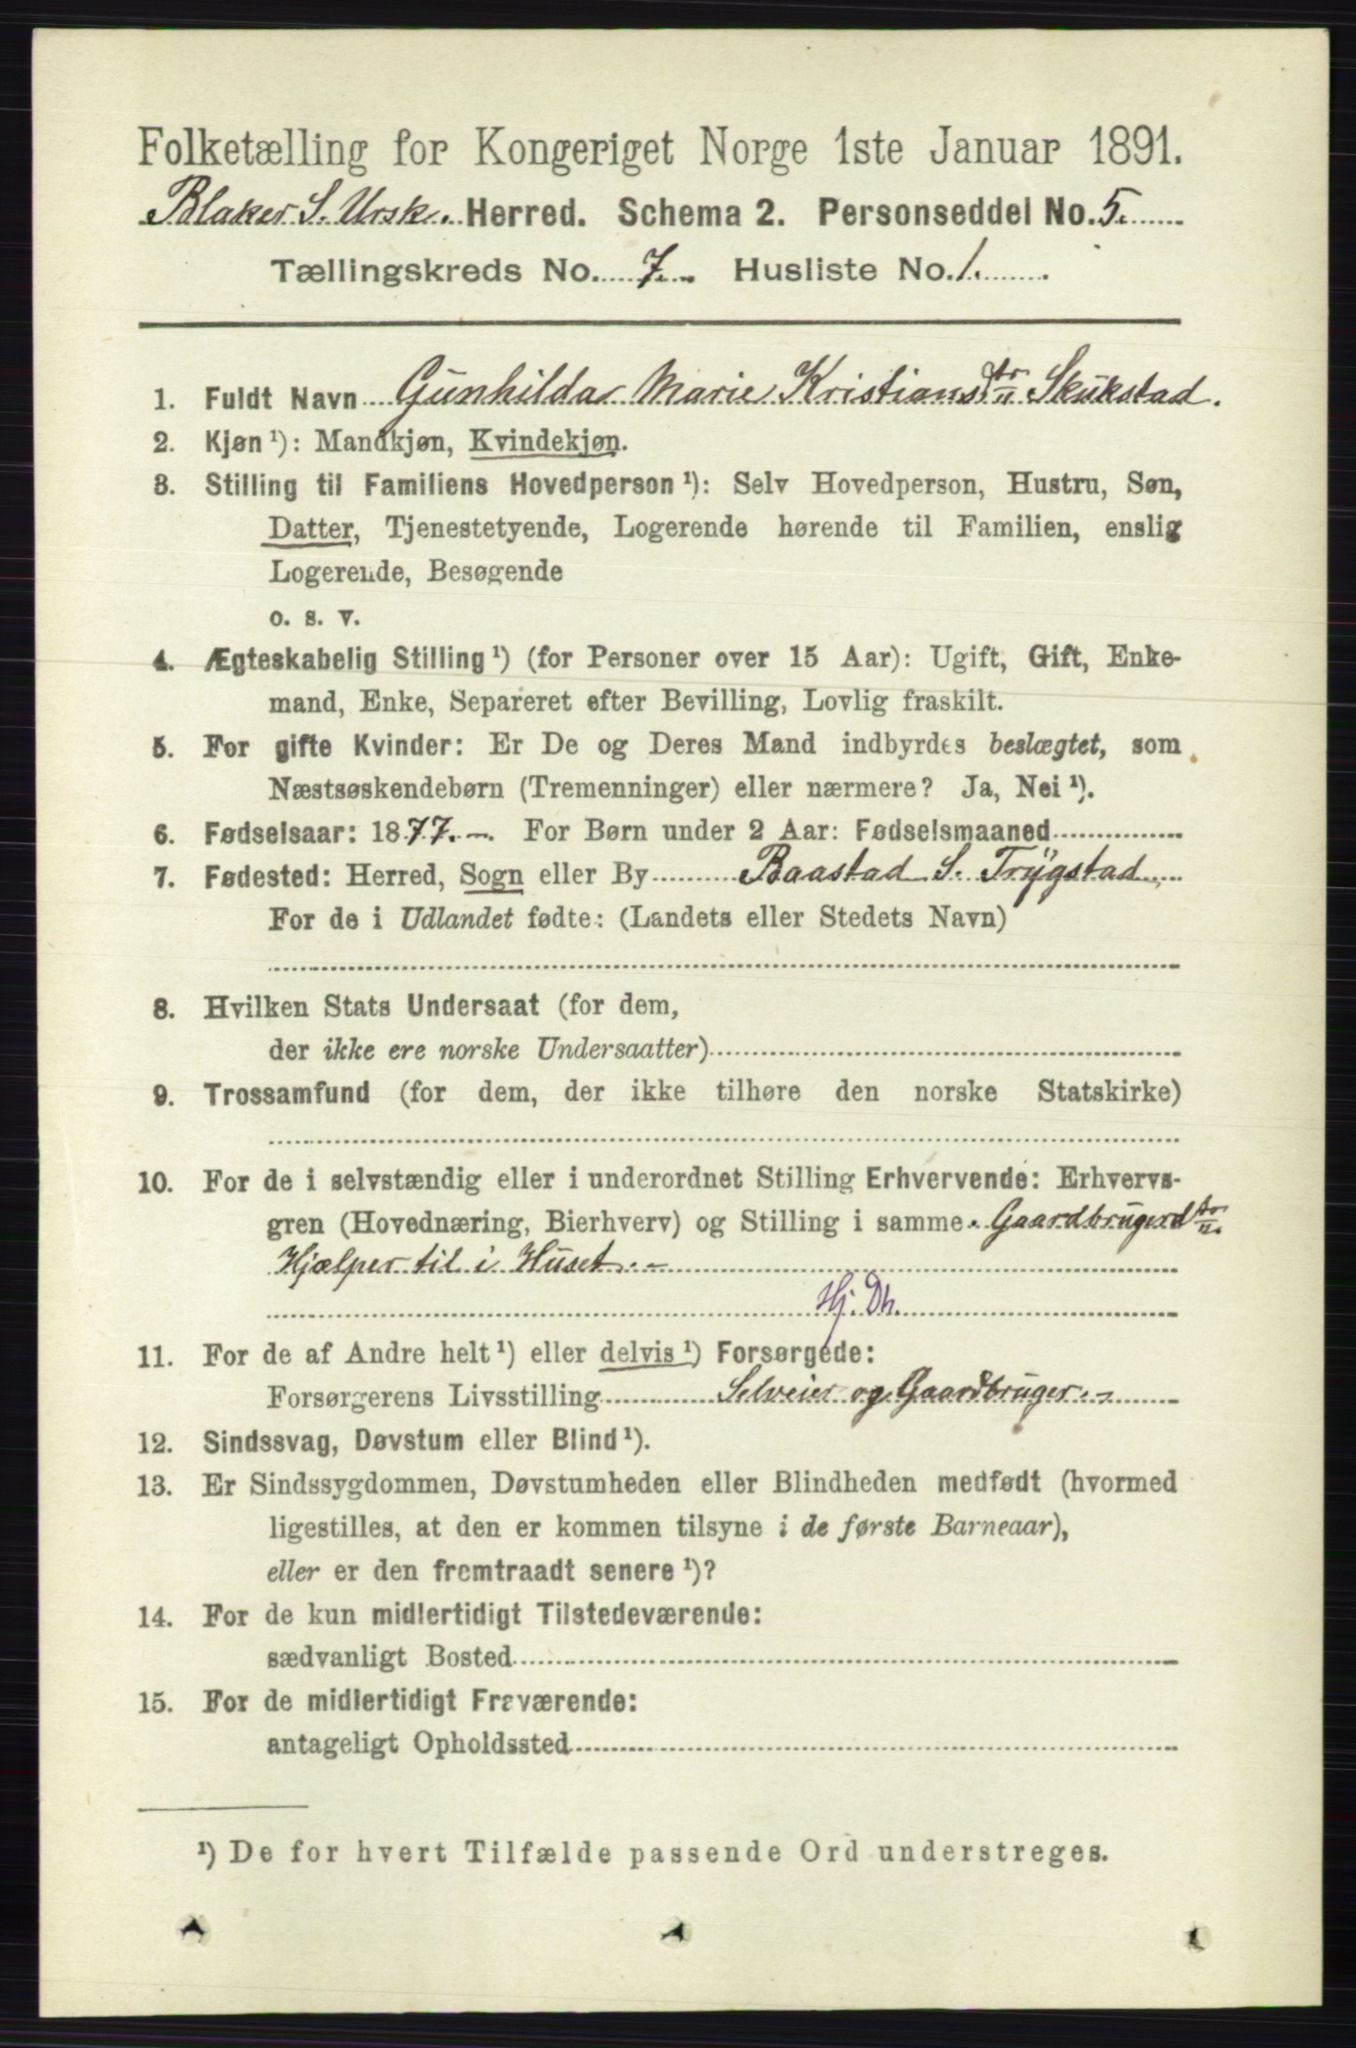 Folketælling for Kongeriget Norge 1ste Januar 1891.
Blaker S. Ursk. Herred. Schema 2. Personseddel No. 5.
Tællingskreds No. 7. Husliste No. 1.
1. Fuldt Navn Gunhilda Marie Kristiansdtr Skukstad.
2. Kjøn ¹): Mandkjøn, Kvindekjøn.
3. Stilling til Familiens Hovedperson ¹): Selv Hovedperson, Hustru, Søn,
Datter, Tjenestetyende, Logerende hørende til Familien, enslig
Logerende, Besøgende
o. s. v.
4. Ægteskabelig Stilling ¹) (for Personer over 15 Aar): Ugift, Gift, Enke-
mand, Enke, Separeret efter Bevilling, Lovlig fraskilt.
5. For gifte Kvinder: Er De og Deres Mand indbyrdes beslægtet, som
Næstsøskendebørn (Tremenninger) eller nærmere? Ja, Nei ¹).
6. Fødselsaar: 1877. — For Børn under 2 Aar: Fødselsmaaned
7. Fødested: Herred, Sogn eller By Baastad S. Trygstad
For de i Udlandet fødte: (Landets eller Stedets Navn)
8. Hvilken Stats Undersaat (for dem,
der ikke ere norske Undersaatter)
9. Trossamfund (for dem, der ikke tilhøre den norske Statskirke)
10. For de i selvstændig eller i underordnet Stilling Erhvervende: Erhvervs-
gren (Hovednæring, Bierhverv) og Stilling i samme. Gaardbrugerdtr.
Hjælper til i Huset. —
Hj. Dh.
11. For de af Andre helt ¹) eller delvis ¹) Forsørgede:
Forsørgerens Livsstilling Selveier og Gaardbruger. —
12. Sindssvag, Døvstum eller Blind ¹).
13. Er Sindssygdommen, Døvstumheden eller Blindheden medfødt (hvormed
ligestilles, at den er kommen tilsyne i de første Barneaar),
eller er den fremtraadt senere ¹)?
14. For de kun midlertidigt Tilstedeværende:
sædvanligt Bosted
15. For de midlertidigt Fraværende:
antageligt Opholdssted
¹) De for hvert Tilfælde passende Ord understreges.